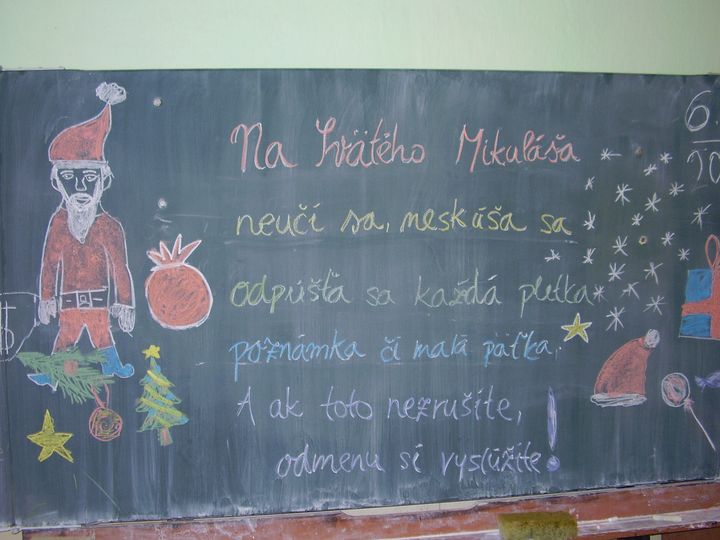 Na Svätého Mikuláša
neučí sa, neskúša sa
odpúšťa sa každá pletka
poznámka či malá päťka.
A ak toto nezrušíte,
odmenu si vyslúžite!
6.
20
$